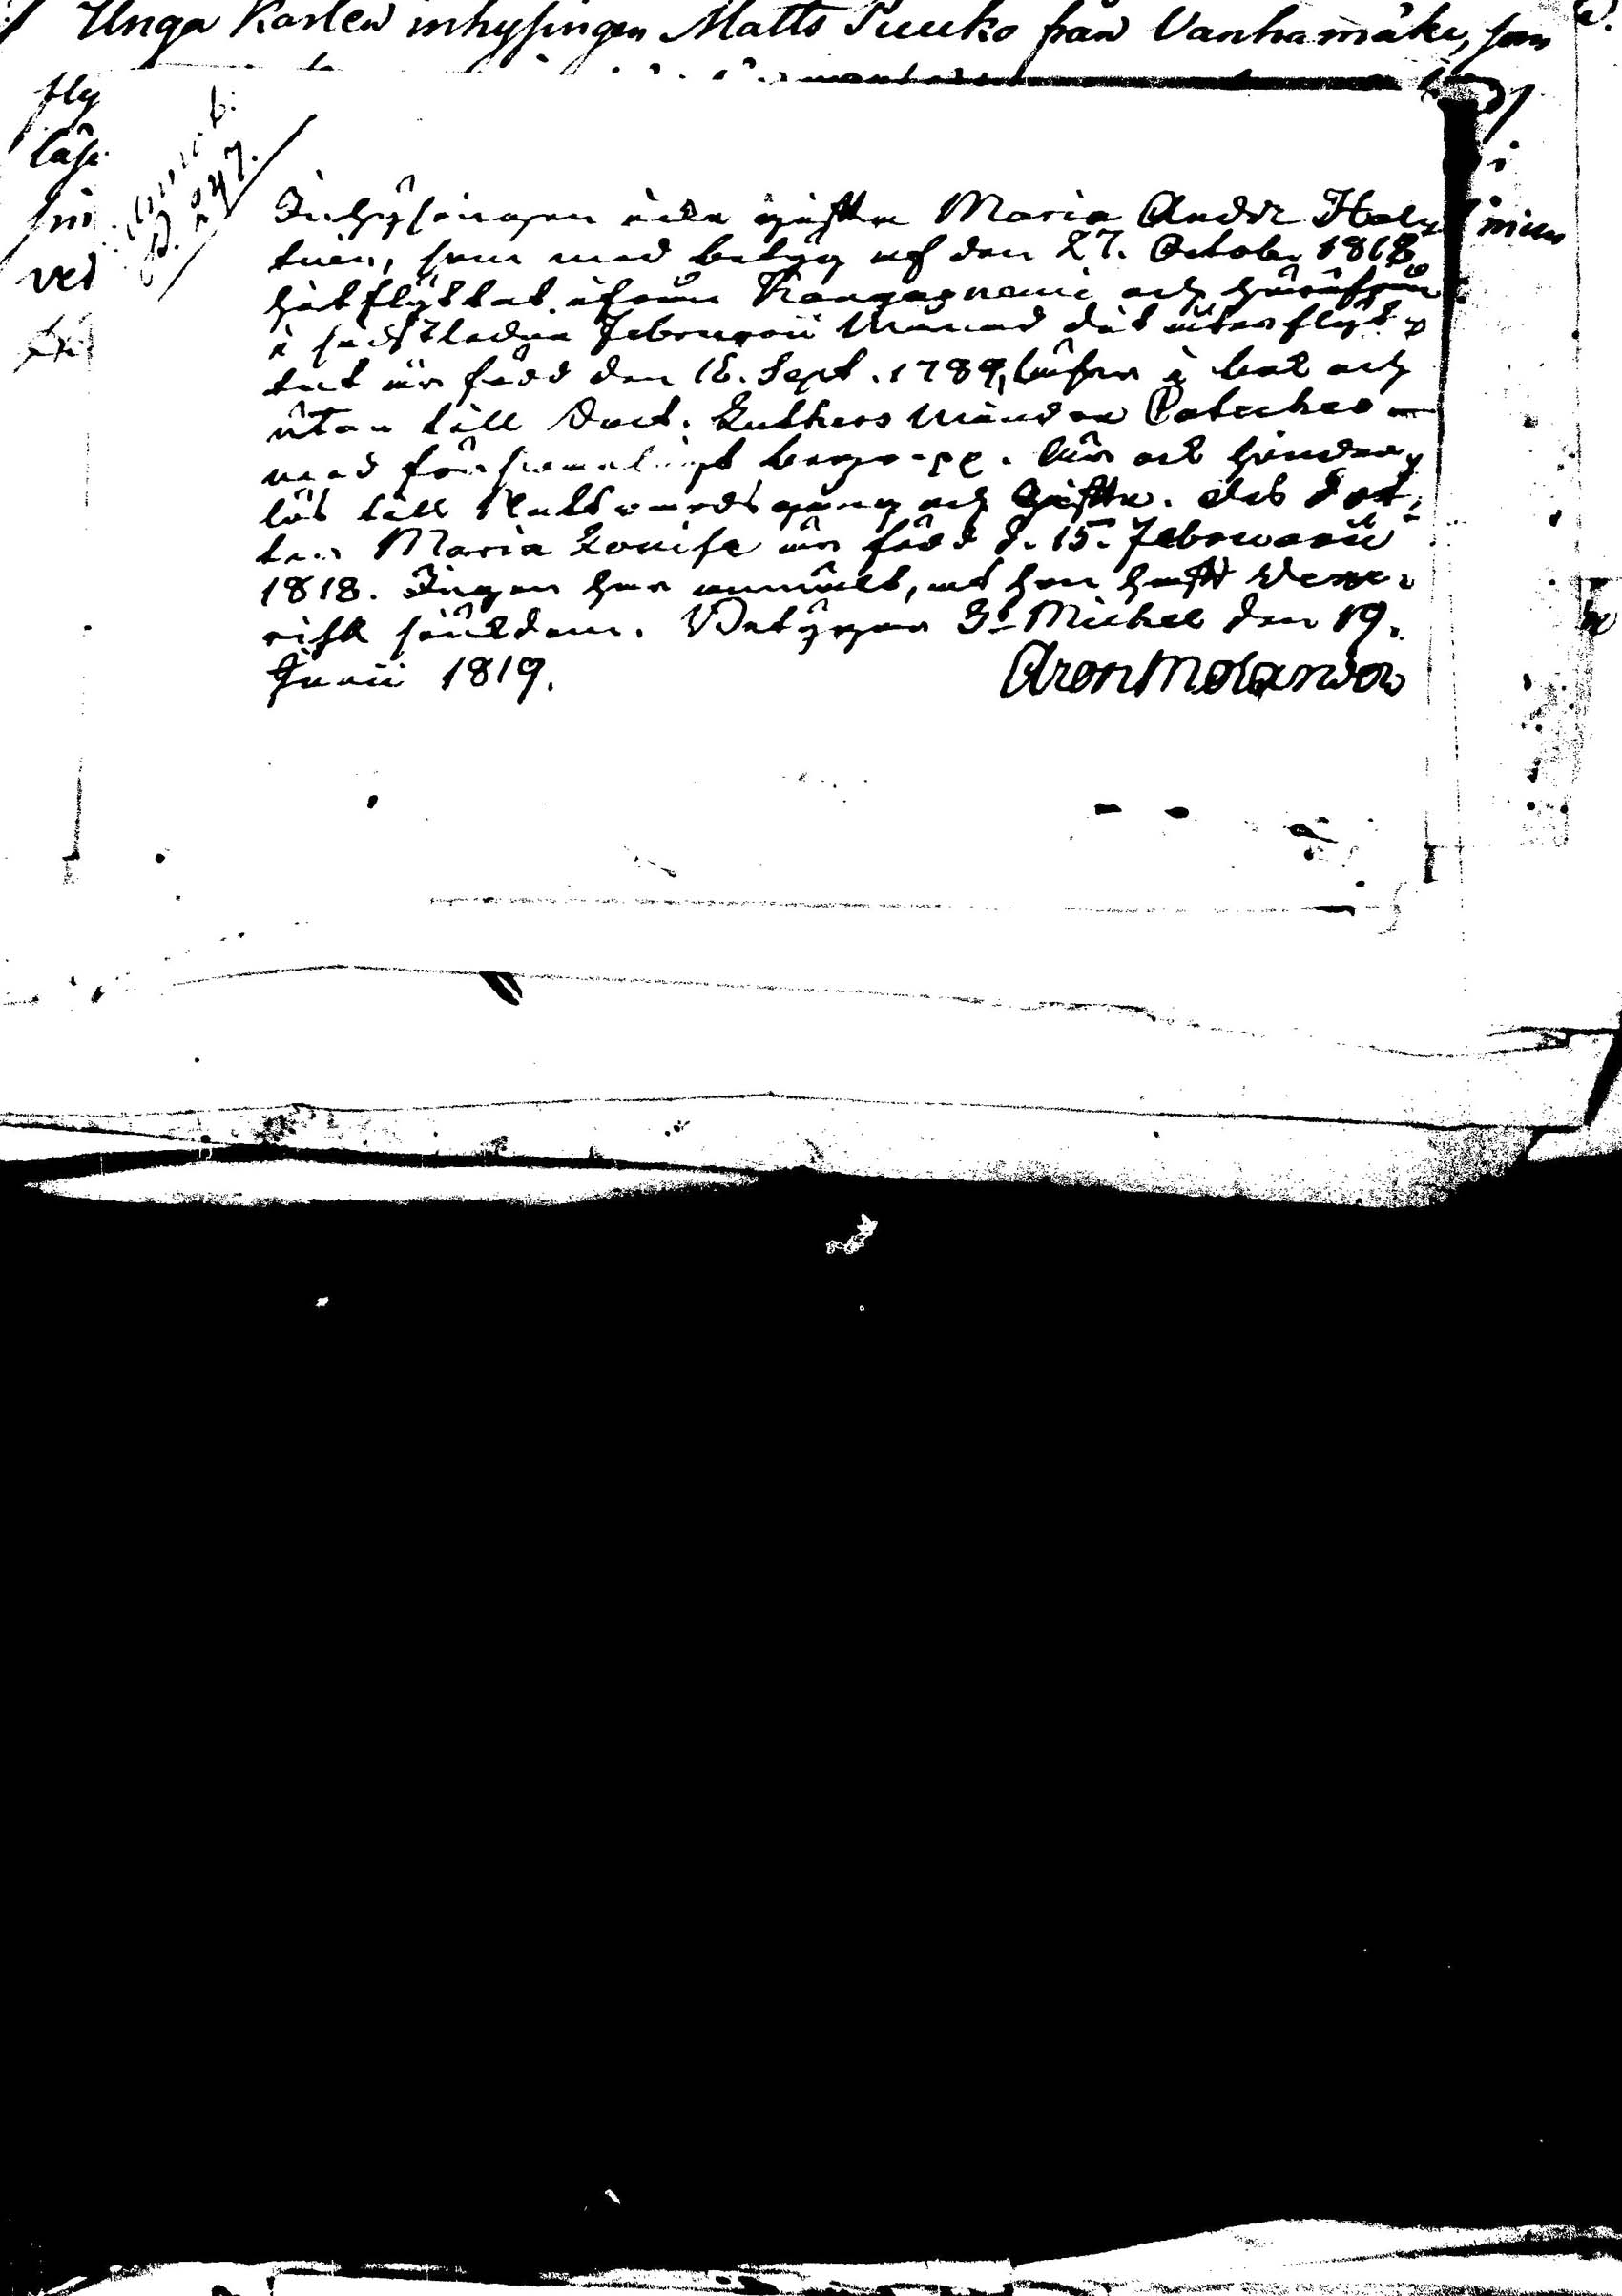 Unga Karlen inhysingen Matts Puuko från Vanhamäki, som
fly
läse
ved
N. 247.
Inhysingen icke gifta Maria Andr. Haly
tuin, som med betyg af den 27. Octob. 1818
hitflyttat ifrån Kangasniemi och härifrån
i sistledne Februarii Månad dit åter flyt
tat är född den 16. Sept. 1789, läser i bok och
utan till Doct. Luthers Mindre Cateches
med försvarligt begrepp. Är ock hinder
lös till Nattvardsgång och Gifte. Des Dot
ter Maria Lovisa är född d. 15. Februarii
1818. Ingen har anmält, at hon haft Vene
risk sjukdom. Betygar St Michel den 19.
Junii 1819. Aron Molander